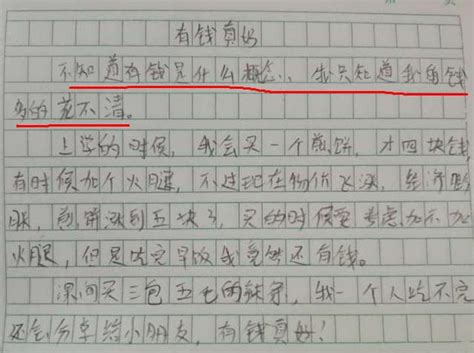 有钱真好
不知道有钱是什么概念，我只知道我的钱
多的花不清。
上学的时候，我会买一个煎饼，才四块钱
有时候加个火腿，不过现在物价飞涨，经济膨
胀，煎饼涨到五块了，买的时候要考虑加不加
火腿，但是吃完早饭我竟然还有钱。
课间买三包五毛的辣条，我一个人吃不完
还会分享给小朋友，有钱真好！